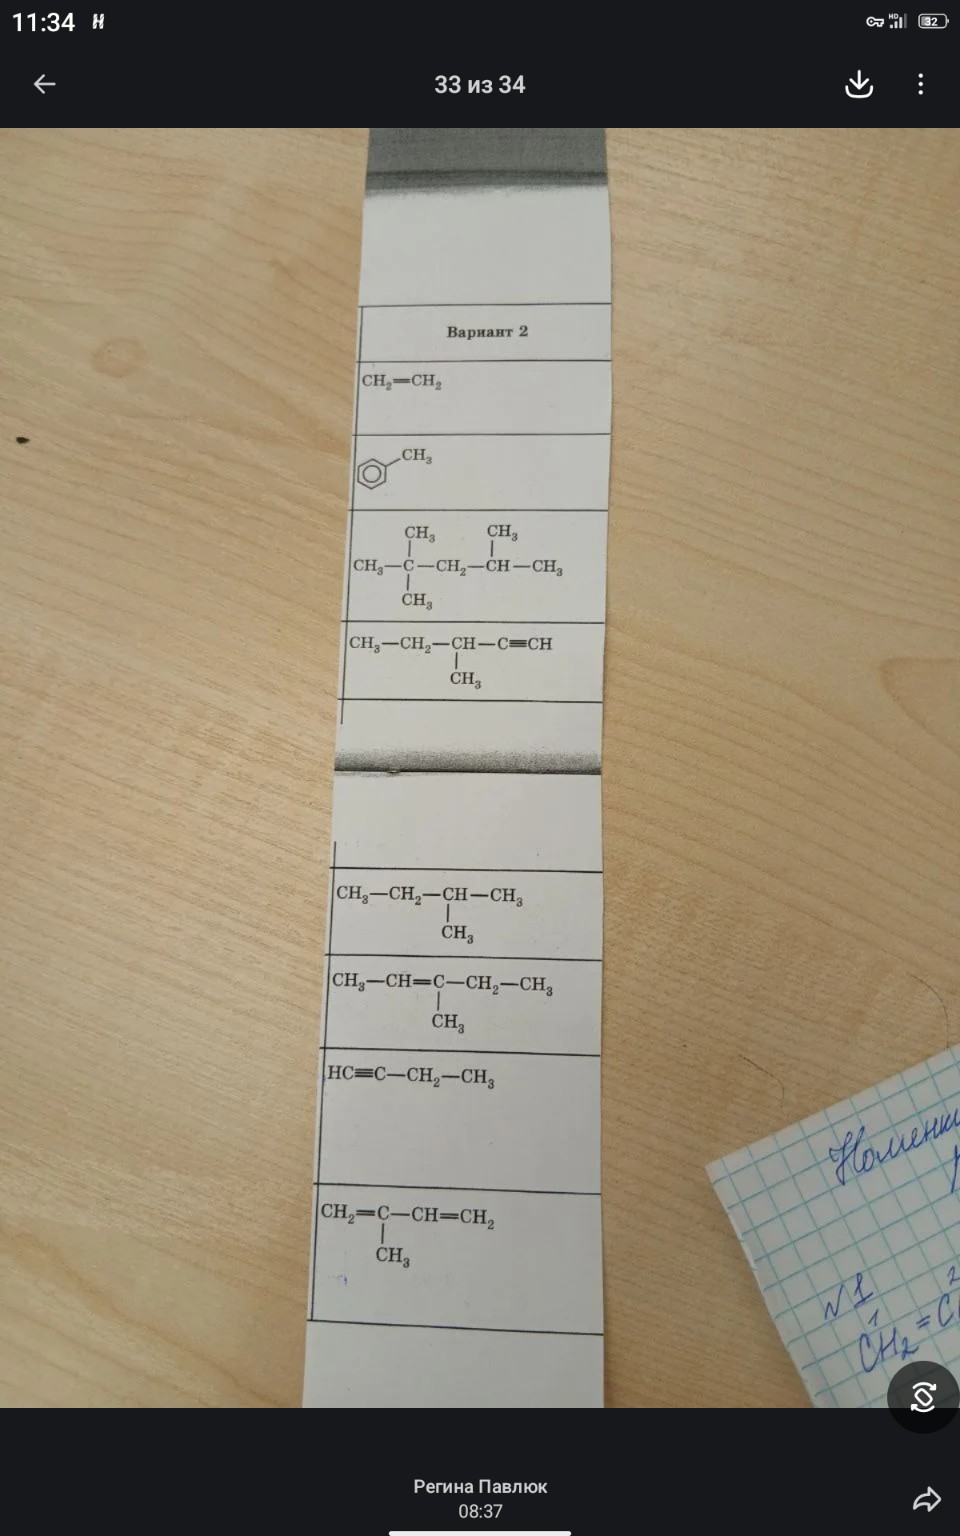 11:34
HD
32
33 из 34
Вариант 2
CH₂=CH₂
CH₃
CH₃ CH₃
CH₃—C—CH₂—CH—CH₃
CH₃
CH₃—CH₂—CH—C≡CH
CH₃
CH₃—CH₂—CH—CH₃
CH₃
CH₃—CH=C—CH₂—CH₃
CH₃
HC≡C—CH₂—CH₃
CH₂=C—CH=CH₂
CH₃
№1
1 2
CH₂=C
Регина Павлюк
08:37